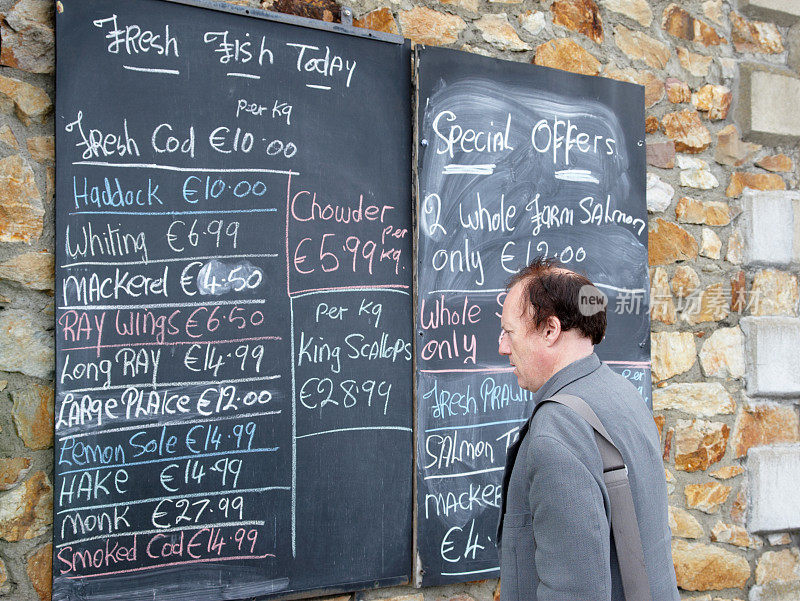 Fresh Fish Today
per Kg
Fresh Cod €10.00
Haddock €10.00
Whiting €6.99
Mackerel €4.50
Ray Wings €6.50
Long Ray €14.99
Large Plaice €12.00
Lemon Sole €14.99
Hake €14.99
Monk €27.99
Smoked Cod €14.99
Chowder
€5.99 per Kg.
per Kg
King Scallops
€28.99
Special Offers
2 Whole Farm Salmon
only €12.00
Whole
only
Fresh Prawn
per
Salmon
Mackerel
€4.
new
新址网